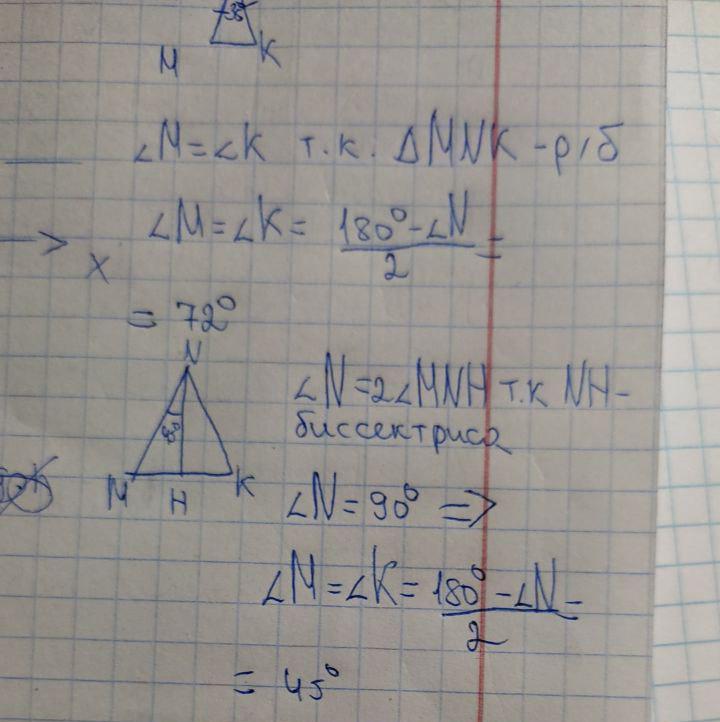 36°
M K
∠M = ∠K т.к. ΔMNK - р/б
∠M = ∠K = 180° - ∠N / 2 =
x
= 72°
N
∠N = 2∠MNH т.к NH -
биссектриса
45°
M H K
∠N = 90° =>
∠M = ∠K = 180° - ∠N / 2 =
= 45°